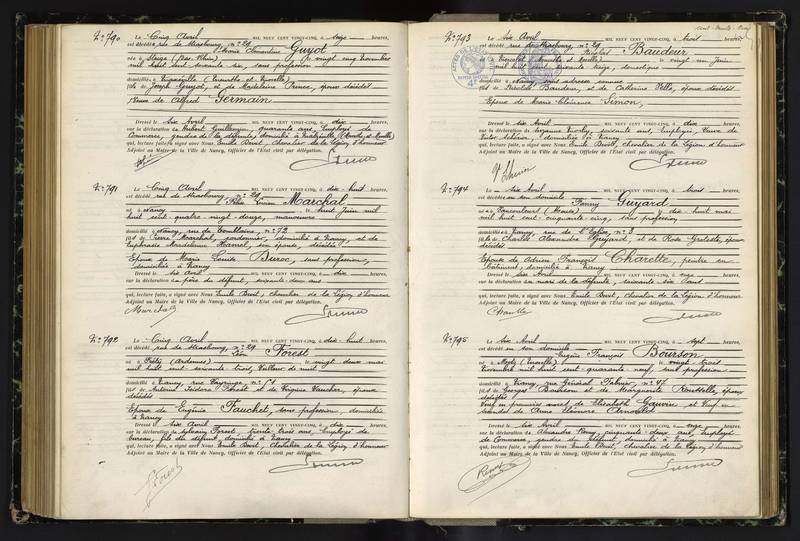 N° 790
Le Cinq Avril MIL NEUF CENT VINGT-CINQ, à seize heures,
est décédé rue de Strasbourg, n° 29
Marie Clementine Guyot
née à (Bas Rhin) le vingt cinq novembre
mil huit cent soixante six, sans profession
domiciliée à (Meurthe et Moselle)
fille de Joseph Guyot, et de Madeleine Prince, époux décédés
Veuve de Alfred Germain
Dressé le six Avril MIL NEUF CENT VINGT-CINQ, à dix heures,
sur la déclaration de Hubert Guillemin, quarante ans, Employé de
Commerce, gendre de la défunte, domicilié à (Meurthe et Moselle)
qui, lecture faite, a signé avec Nous Emile Benit, Chevalier de la Légion d'honneur
Adjoint au Maire de la Ville de Nancy, Officier de l'Etat civil par délégation.
N° 791
Le Cinq Avril MIL NEUF CENT VINGT-CINQ, à dix-huit heures,
est décédé rue de Strasbourg, n° 29
Félix Lucien Marchal
né à Nancy le huit Juin mil
huit cent quatre-vingt-douze, manœuvre
domicilié à Nancy, rue de Tomblaine n° 72
fils de Pierre Marchal, cordonnier, domicilié à Nancy, et de
Euphrasie Magdeleine Hamel, son épouse, décédée
Epoux de Marie Louise Buron, sans profession,
domiciliée à Nancy
Dressé le six Avril MIL NEUF CENT VINGT-CINQ, à dix heures,
sur la déclaration du père du défunt, soixante deux ans
qui, lecture faite, a signé avec Nous Emile Benit, Chevalier de la Légion d'honneur
Adjoint au Maire de la Ville de Nancy, Officier de l'Etat civil par délégation.
Marchal
N° 792
Le Cinq Avril MIL NEUF CENT VINGT-CINQ, à dix huit heures,
est décédé rue de Strasbourg, n° 29
Léon Forest
né à (Ardennes) le vingt deux mai
mil huit cent soixante trois, Veilleur de nuit
domicilié à Nancy, rue
fils de Antoine Isidore Forest et de Virginie Vaucher, époux
décédés
Epoux de Eugénie Fauchet, sans profession, domiciliée
à Nancy
Dressé le six Avril MIL NEUF CENT VINGT-CINQ, à dix heures,
sur la déclaration de Sylvain Forest, trente-trois ans, Employé de
bureau, fils du défunt, domicilié à Nancy
qui, lecture faite, a signé avec Nous Emile Benit, Chevalier de la Légion d'honneur
Adjoint au Maire de la Ville de Nancy, Officier de l'Etat civil par délégation.
Forest
N° 793
Le six Avril MIL NEUF CENT VINGT-CINQ, à trois heures,
est décédé rue de Strasbourg n° 29
Nicolas Baudeur
né à (Meurthe et Moselle) le vingt un Juin
mil huit cent soixante treize, domestique
domicilié à Nancy, sans adresse connue
fils de Nicolas Baudeur, et de Catherine époux décédés
Epoux de Marie Clémence Simon,
Dressé le six Avril MIL NEUF CENT VINGT-CINQ, à dix heures,
sur la déclaration de Suzanne soixante ans, Employée, Veuve de
domiciliée à Nancy
qui, lecture faite, a signé avec Nous Emile Benit, Chevalier de la Légion d'honneur
Adjoint au Maire de la Ville de Nancy, Officier de l'Etat civil par délégation.
N° 794
Le six Avril MIL NEUF CENT VINGT-CINQ, à trois heures,
est décédée en son domicile
Fanny Guyard
née à Vaucouleurs (Meuse) le dix huit mai
mil huit cent cinquante cinq, sans profession
domiciliée à Nancy, rue de l'Eglise, n° 3
fille de Charles Alexandre Guyard, et de Rose époux
décédés
Epouse de Adrien François Charette, peintre en
bâtiment, domicilié à Nancy
Dressé le six Avril MIL NEUF CENT VINGT-CINQ, à onze heures,
sur la déclaration du mari de la défunte, soixante six ans
qui, lecture faite, a signé avec Nous Emile Benit, Chevalier de la Légion d'honneur
Adjoint au Maire de la Ville de Nancy, Officier de l'Etat civil par délégation.
N° 795
Le six Avril MIL NEUF CENT VINGT-CINQ, à sept heures,
est décédé en son domicile
Eugène François Bourson
né à (Moselle) le vingt-trois
Novembre mil huit cent quarante neuf, sans profession
domicilié à Nancy, rue Général Fabvier, n° 47
fils de George Bourson et de Marguerite époux
décédés
Veuf en premières noces de Elisabeth Gauvin et Veuf en
secondes de Anne Eléonore Arnould
Dressé le six Avril MIL NEUF CENT VINGT-CINQ, à onze heures,
sur la déclaration de Alexandre Remy, cinquante-deux ans, Employé
de Commerce, gendre du défunt, domicilié à Nancy
qui, lecture faite, a signé avec Nous Emile Benit, Chevalier de la Légion d'honneur
Adjoint au Maire de la Ville de Nancy, Officier de l'Etat civil par délégation.
Remy